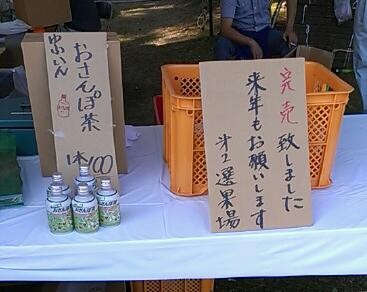 ゆふいん
おさんぽ茶
1本100
完売致しました
来年もお願いします
第2選果場